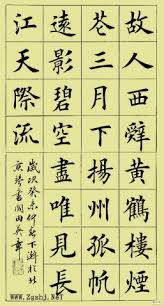 故人西辭黃鶴樓煙
花三月下揚州孤帆
遠影碧空盡唯見長
江天際流
歲次癸未仲夏下澣於北
田英章